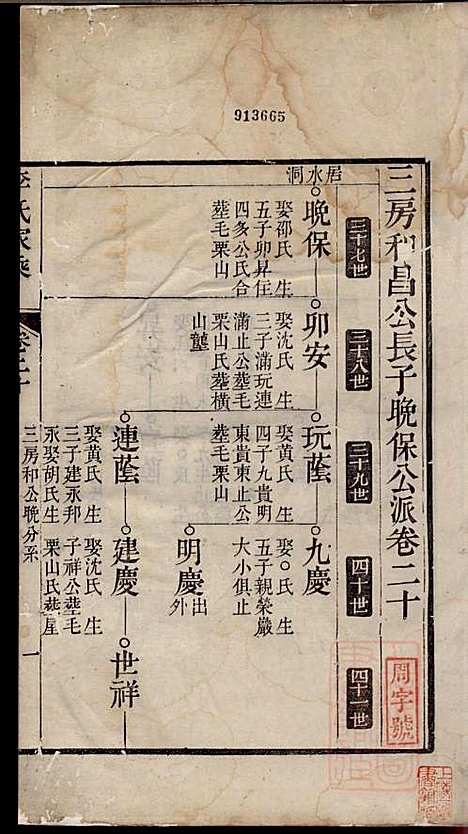 913665
三房和昌公長子晚保公派卷二十
三十七世
三十八世
三十九世
四十世
四十一世
居水洞
晚保
娶邵氏 生
五子卯昇任
四多公氏合
塟毛栗山
卯安
娶沈氏 生
三子滿玩連
滿止公塟毛
栗山氏塟橫
山壟
玩蔭
娶黄氏 生
四子九貴明
東貴東止公
塟毛栗山
九慶
娶○氏 生
五子親榮嚴
大小俱止
明慶
出外
連蔭
娶黄氏 生
三子建永邦
永娶胡氏生
建慶
娶沈氏 生
子祥公塟毛
栗山氏塟屋
世祥
三房和公晚分系
一
李氏家乘
卷二十
周字號